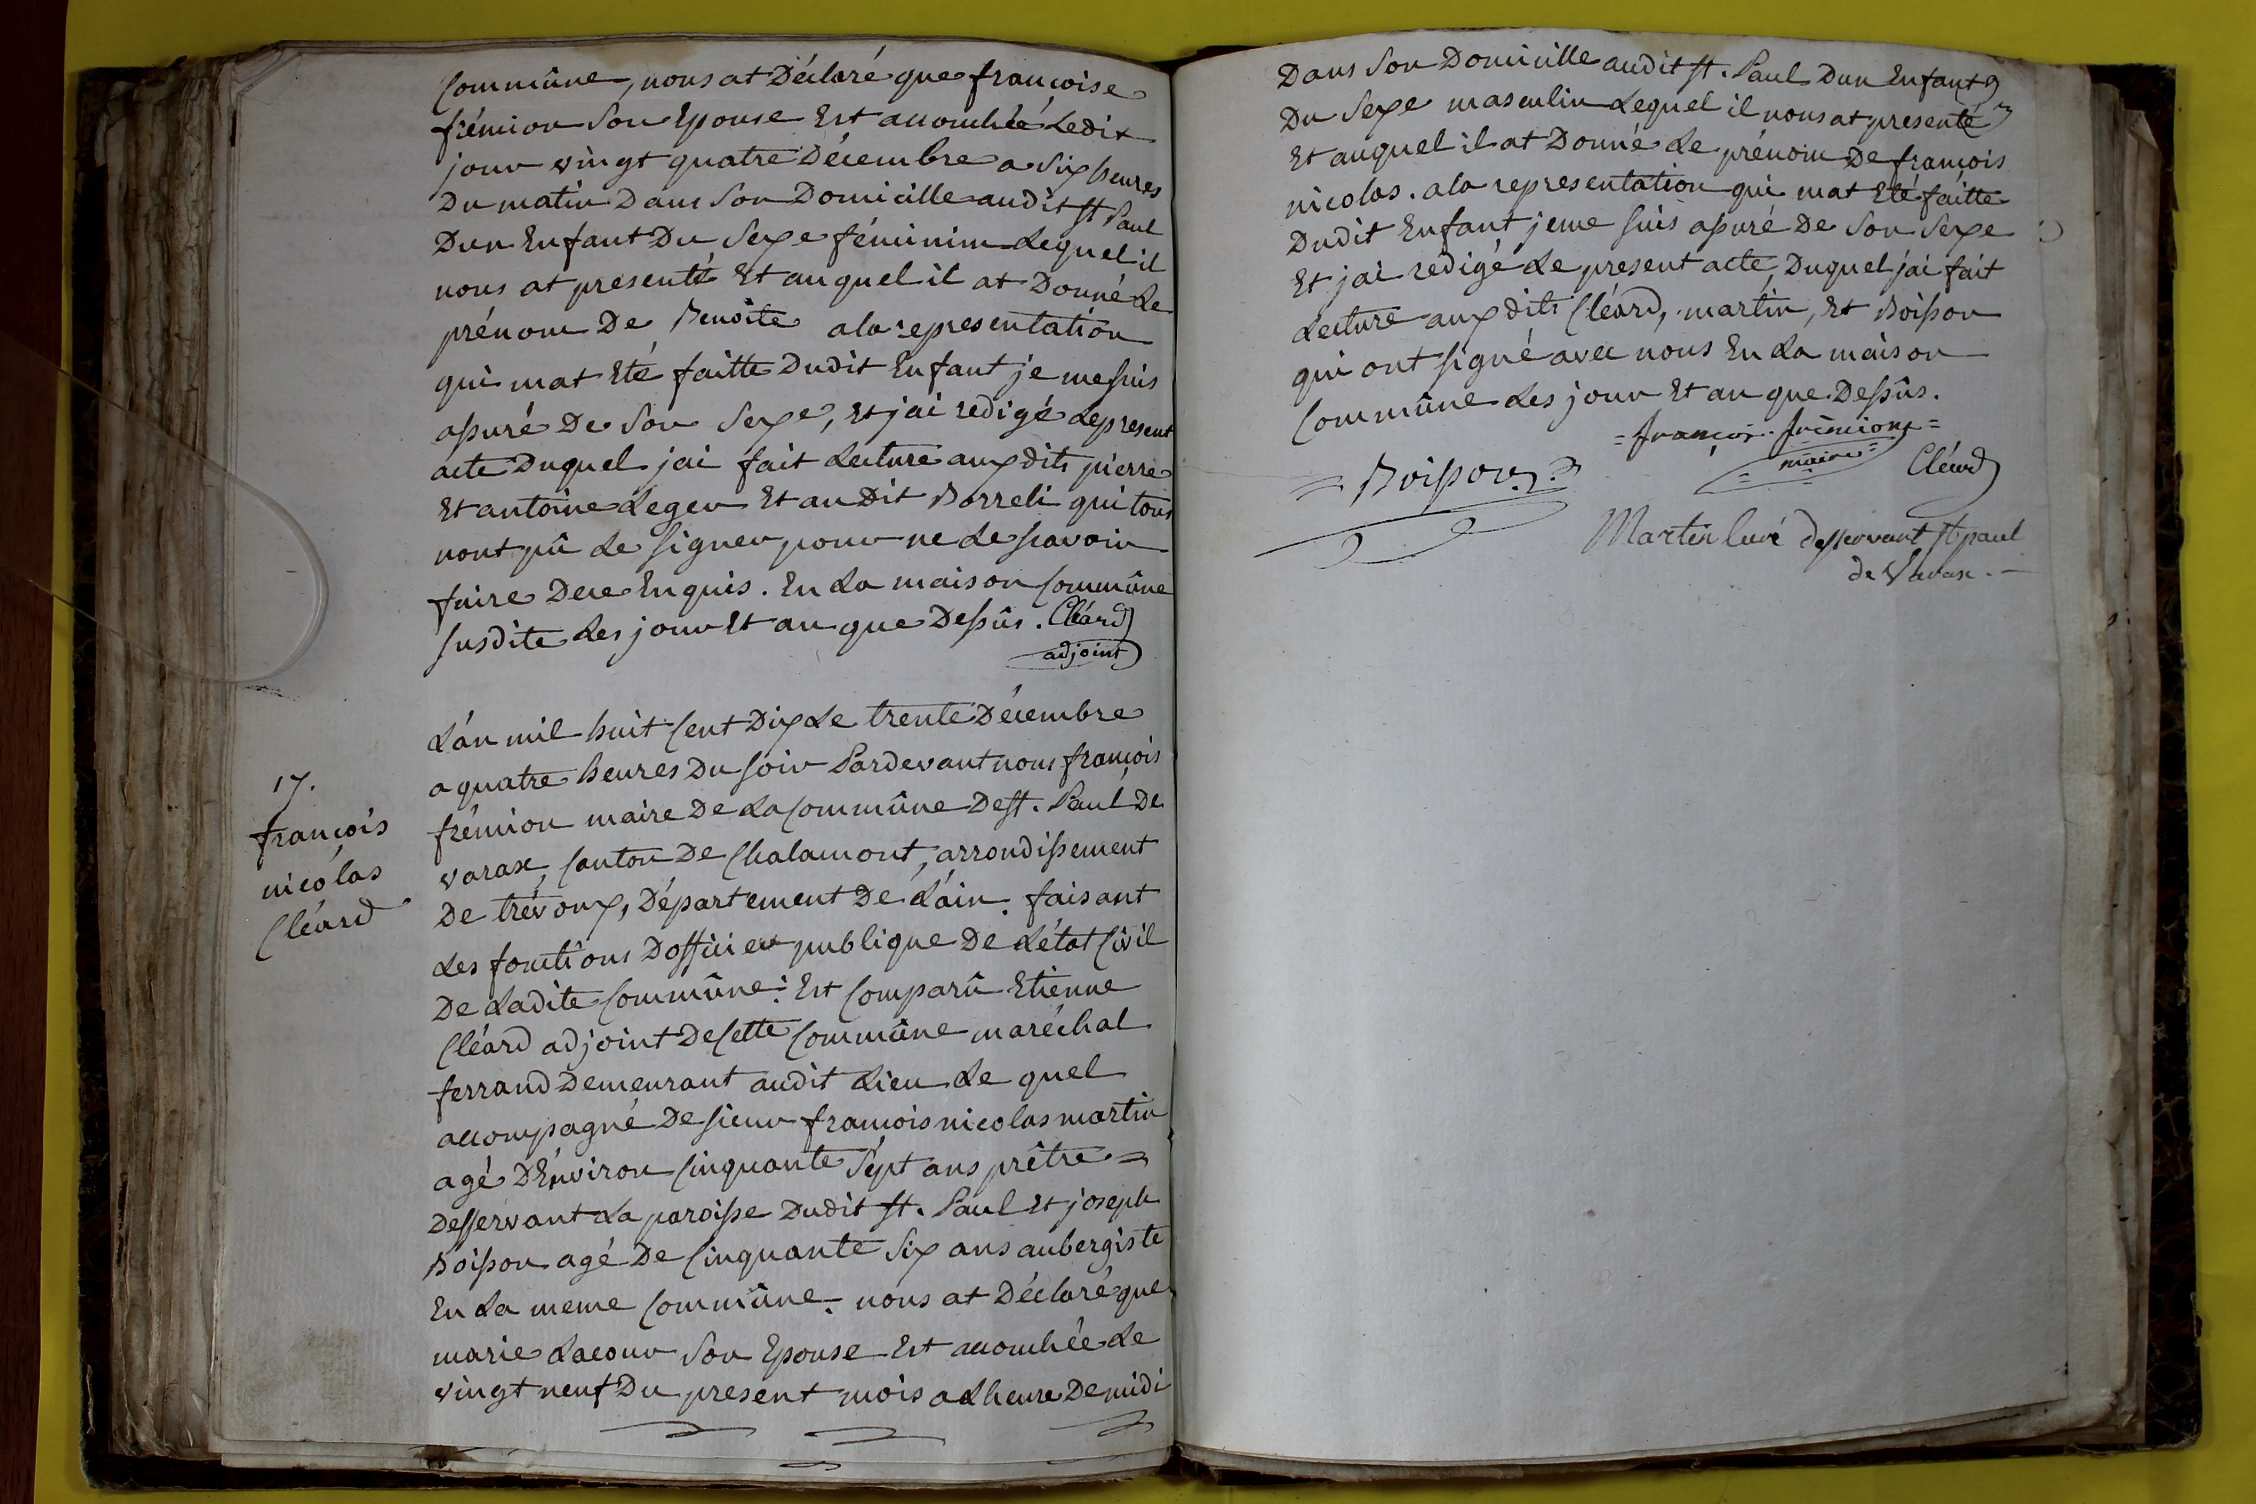 Commûne, nous at Déclaré que françoise
frémion Son Epouse Est accouchée Ledit
jour vingt quatre Décembre a Six heures
Du matin Dans Son Domicille audit St Paul
Dun Enfant Du Sexe féminim Lequel il
nous at presenté Et auquel il at Donné Le
prénom De Benoite ala representation
qui mat Eté faitte Dudit Enfant je me suis
assuré De Son Sexe, Et jai redigé Le present
acte Duquel jai fait Lecture aux dits pierre
Et antoine Leger Et au Dit Borreli qui tous
nont pû Le Signer pour ne Le scavoir
faire Dece Enquis. En La maison Commûne
susdite Les jour Et an que Dessûs. Cléard
adjoint
L'an mil huit Cent Dix Le trente Décembre
a quatre heures Du soir Pardevant nous françois
frémion maire De La Commûne De St. Paul De
varax, Canton De Chalamont, arrondissement
De trévoux, Département De L'ain. faisant
Les fonctions D'officier publique De L'état Civil
De Ladite Commûne: Est Comparû Etienne
Cléard adjoint De Cette Commûne maréchal
ferrand Demeurant audit Lieu Le quel
accompagné De sieur françois nicolas martin
agé D'Environ Cinquante Sept ans prêtre =
Desservant La paroisse Dudit St. Paul Et joseph
Boisson agé De Cinquante Six ans aubergiste
En La meme Commûne. nous at Déclaré que
marie Lacour Son Epouse Est accouchée Le
vingt neuf Du present mois a Lheure De midi
17.
françois
nicolas
Cléard
Dans Son Domicille audit St. Paul Dun Enfant
Du Sexe masculin Lequel il nous at presenté
Et auquel il at Donné Le prénom De françois
nicolas. ala representation qui mat Eté faitte
Dudit Enfant jeme suis assuré De Son Sexe
Et jai redigé Le present acte, Duquel jai fait
Lecture aux dits Cléard, martin, Et Boisson
qui ont signé avec nous En La maison
Commûne Les jour Et an que Dessûs.
= françois frémion =
maire =
Cléard
= Boisson =
Martin Curé desservant St paul
de Varax. —